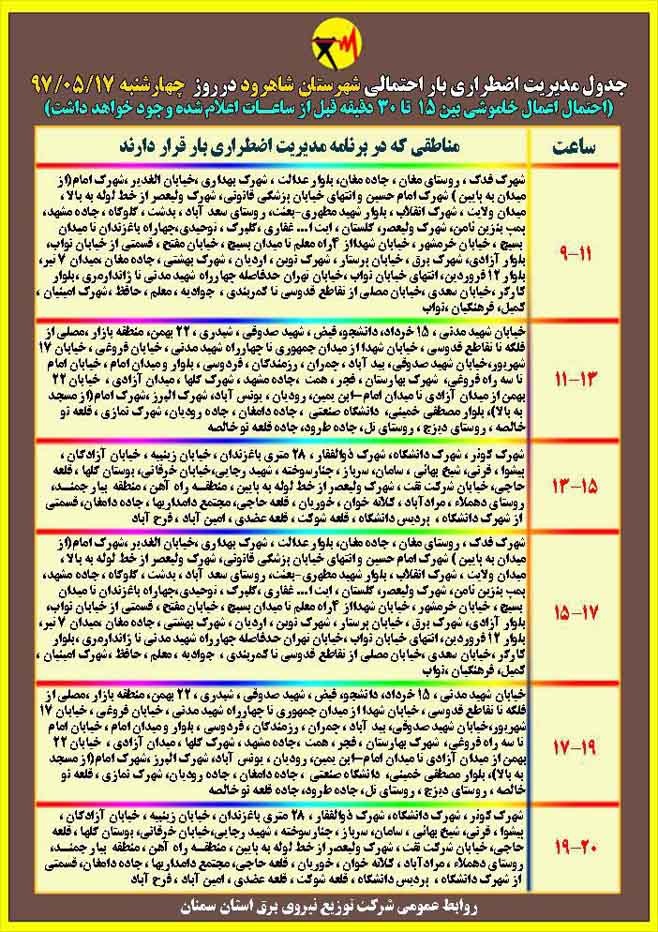 جدول مدیریت اضطراری بار احتمالی شهرستان شاهرود در روز چهارشنبه ۹۷/۰۵/۱۷
(احتمال اعمال خاموشی بین ۱۵ تا ۳۰ دقیقه قبل از ساعات اعلام شده وجود خواهد داشت)
ساعت
مناطقی که در برنامه مدیریت اضطراری بار قرار دارند
۹-۱۱
شهرک فدک ، روستای مغان ، جاده مغان، بلوار عدالت ، شهرک بهداری ،خیابان الغدیر ،شهرک امام(از
میدان به پایین ) شهرک امام حسین و انتهای خیابان پزشکی قانونی، شهرک ولیعصر از خط لوله به بالا،
میدان ولایت ، شهرک انقلاب ، بلوار شهید مطهری-بعثت، روستای سعد آباد ، بدشت ، گلوگاه ، جاده مشهد،
پمپ بنزین ثامن، شهرک ولیعصر، گلستان ، آیت ا... غفاری ، گلبرگ ، توحیدی،چهارراه باغزندان تا میدان
بسیج ، خیابان خرمشهر ، خیابان شهدااز ۴راه معلم تا میدان بسیج ، خیابان مفتح ، قسمتی از خیابان نواب،
بلوار آزادی، شهرک برق ، خیابان پرستار ، شهرک نوین ، اردیان ، شهرک بهشتی ، جاده مغان ،میدان ۷ تیر،
بلوار ۱۲ فروردین، انتهای خیابان نواب، خیابان تهران حدفاصله چهارراه شهید مدنی تا ژاندارمری ، بلوار
کارگر ، خیابان سعدی ،خیابان مصلی از تقاطع قدوسی تا کمربندی ، جوادیه ، معلم ، حافظ ،شهرک امینیان ،
کمیل، فرهنگیان ،نواب
۱۱-۱۳
خیابان شهید مدنی ، ۱۵ خرداد، دانشجو، فیض ، شهید صدوقی ، شیدری ، ۲۲ بهمن، منطقه بازار ،مصلی از
فلکه تا تقاطع قدوسی ، خیابان شهدا از میدان جمهوری تا چهارراه شهید مدنی ، خیابان فروغی ، خیابان ۱۷
شهریور،خیابان شهید صدوقی، بید آباد ، چمران ، رزمندگان ، فردوسی ، بلوار و میدان امام ، خیابان امام
تا سه راه فروغی، شهرک بهارستان ، فجر ، همت ، جاده مشهد ، شهرک گلها ، میدان آزادی ، خیابان ۲۲
بهمن از میدان آزادی تا میدان امام-ابن یمین، رودیان ، یونس آباد، شهرک البرز ،شهرک امام(از مسجد
به بالا)، بلوار مصطفی خمینی، دانشگاه صنعتی ، جاده دامغان ، جاده رودیان، شهرک نمازی ، قلعه نو
خالصه ، روستای دیزج ، روستای تل، جاده طرود، جاده قلعه نو خالصه
۱۳-۱۵
شهرک کوثر ، شهرک دانشگاه، شهرک ذوالفقار ، ۲۸ متری باغزندان ، خیابان زینبیه ، خیابان آزادگان ،
پیشوا ، قرنی، شیخ بهائی ، سامان، سرباز ، چنارسوخته ، شهید رجایی،خیابان خرقانی، بوستان گلها ، قلعه
حاجی، خیابان شرکت نفت ، شهرک ولیعصر از خط لوله به پایین ، منطقه راه آهن ، منطقه بیارجمند،
روستای دهملاء ، مرادآباد ، کلاته خوان ، خوریان ، قلعه حاجی، مجتمع دامداریها ، جاده دامغان، قسمتی
از شهرک دانشگاه ، پردیس دانشگاه ، قلعه شوکت ، قلعه عضدی ، امین آباد ، فرح آباد
۱۵-۱۷
شهرک فدک ، روستای مغان ، جاده مغان، بلوار عدالت ، شهرک بهداری ،خیابان الغدیر ،شهرک امام(از
میدان به پایین ) شهرک امام حسین و انتهای خیابان پزشکی قانونی، شهرک ولیعصر از خط لوله به بالا،
میدان ولایت ، شهرک انقلاب ، بلوار شهید مطهری-بعثت، روستای سعد آباد ، بدشت ، گلوگاه ، جاده مشهد،
پمپ بنزین ثامن، شهرک ولیعصر، گلستان ، آیت ا... غفاری ، گلبرگ ، توحیدی،چهارراه باغزندان تا میدان
بسیج ، خیابان خرمشهر ، خیابان شهدااز ۴راه معلم تا میدان بسیج ، خیابان مفتح ، قسمتی از خیابان نواب،
بلوار آزادی، شهرک برق ، خیابان پرستار ، شهرک نوین ، اردیان ، شهرک بهشتی ، جاده مغان ،میدان ۷ تیر،
بلوار ۱۲ فروردین، انتهای خیابان نواب، خیابان تهران حدفاصله چهارراه شهید مدنی تا ژاندارمری ، بلوار
کارگر ، خیابان سعدی ،خیابان مصلی از تقاطع قدوسی تا کمربندی ، جوادیه ، معلم ، حافظ ،شهرک امینیان ،
کمیل، فرهنگیان ،نواب
۱۷-۱۹
خیابان شهید مدنی ، ۱۵ خرداد، دانشجو، فیض ، شهید صدوقی ، شیدری ، ۲۲ بهمن، منطقه بازار ،مصلی از
فلکه تا تقاطع قدوسی ، خیابان شهدا از میدان جمهوری تا چهارراه شهید مدنی ، خیابان فروغی ، خیابان ۱۷
شهریور،خیابان شهید صدوقی، بید آباد ، چمران ، رزمندگان ، فردوسی ، بلوار و میدان امام ، خیابان امام
تا سه راه فروغی، شهرک بهارستان ، فجر ، همت ، جاده مشهد ، شهرک گلها ، میدان آزادی ، خیابان ۲۲
بهمن از میدان آزادی تا میدان امام-ابن یمین، رودیان ، یونس آباد، شهرک البرز ،شهرک امام(از مسجد
به بالا)، بلوار مصطفی خمینی، دانشگاه صنعتی ، جاده دامغان ، جاده رودیان، شهرک نمازی ، قلعه نو
خالصه ، روستای دیزج ، روستای تل، جاده طرود، جاده قلعه نو خالصه
۱۹-۲۰
شهرک کوثر ، شهرک دانشگاه، شهرک ذوالفقار ، ۲۸ متری باغزندان ، خیابان زینبیه ، خیابان آزادگان ،
پیشوا ، قرنی، شیخ بهائی ، سامان، سرباز ، چنارسوخته ، شهید رجایی،خیابان خرقانی، بوستان گلها ، قلعه
حاجی، خیابان شرکت نفت ، شهرک ولیعصر از خط لوله به پایین ، منطقه راه آهن ، منطقه بیارجمند،
روستای دهملاء ، مرادآباد ، کلاته خوان ، خوریان ، قلعه حاجی، مجتمع دامداریها ، جاده دامغان، قسمتی
از شهرک دانشگاه ، پردیس دانشگاه ، قلعه شوکت ، قلعه عضدی ، امین آباد ، فرح آباد
روابط عمومی شرکت توزیع نیروی برق استان سمنان